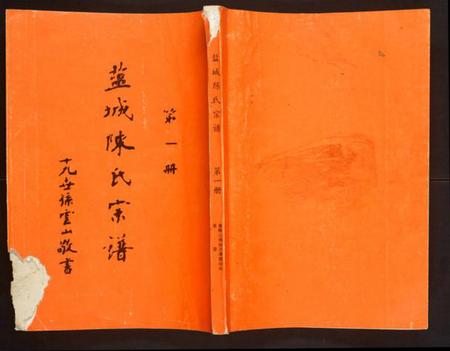 盐城陈氏宗谱
第一册
十九世孙云山敬书
盐城陈氏宗谱
第一册